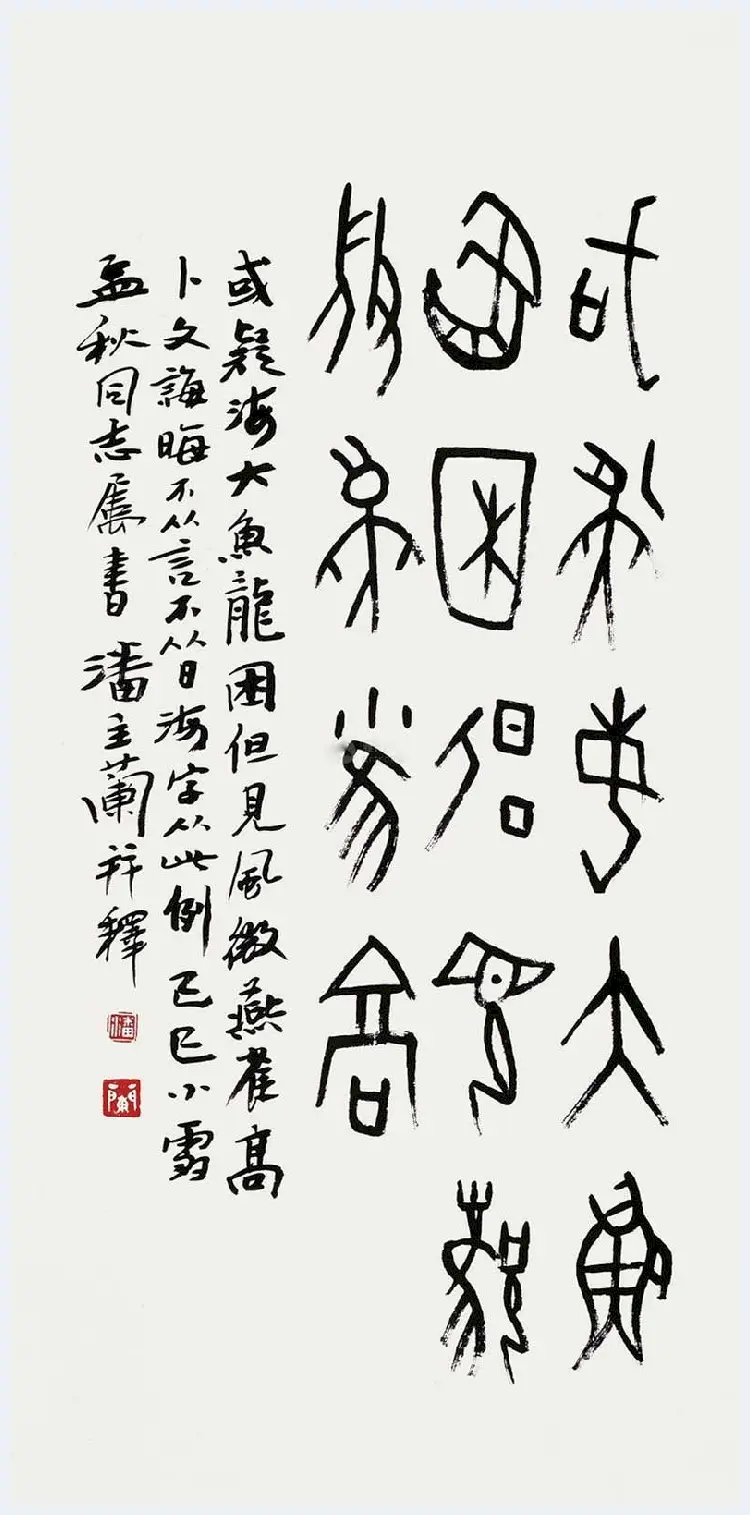 或疑海大魚
龍困但見風
微燕雀高
或疑海大魚龍困但見風微燕雀高
卜文誨晦不从言不从日海字从此例己巳小雪
孟秋同志屬書潘主蘭并釋
潘
蘭